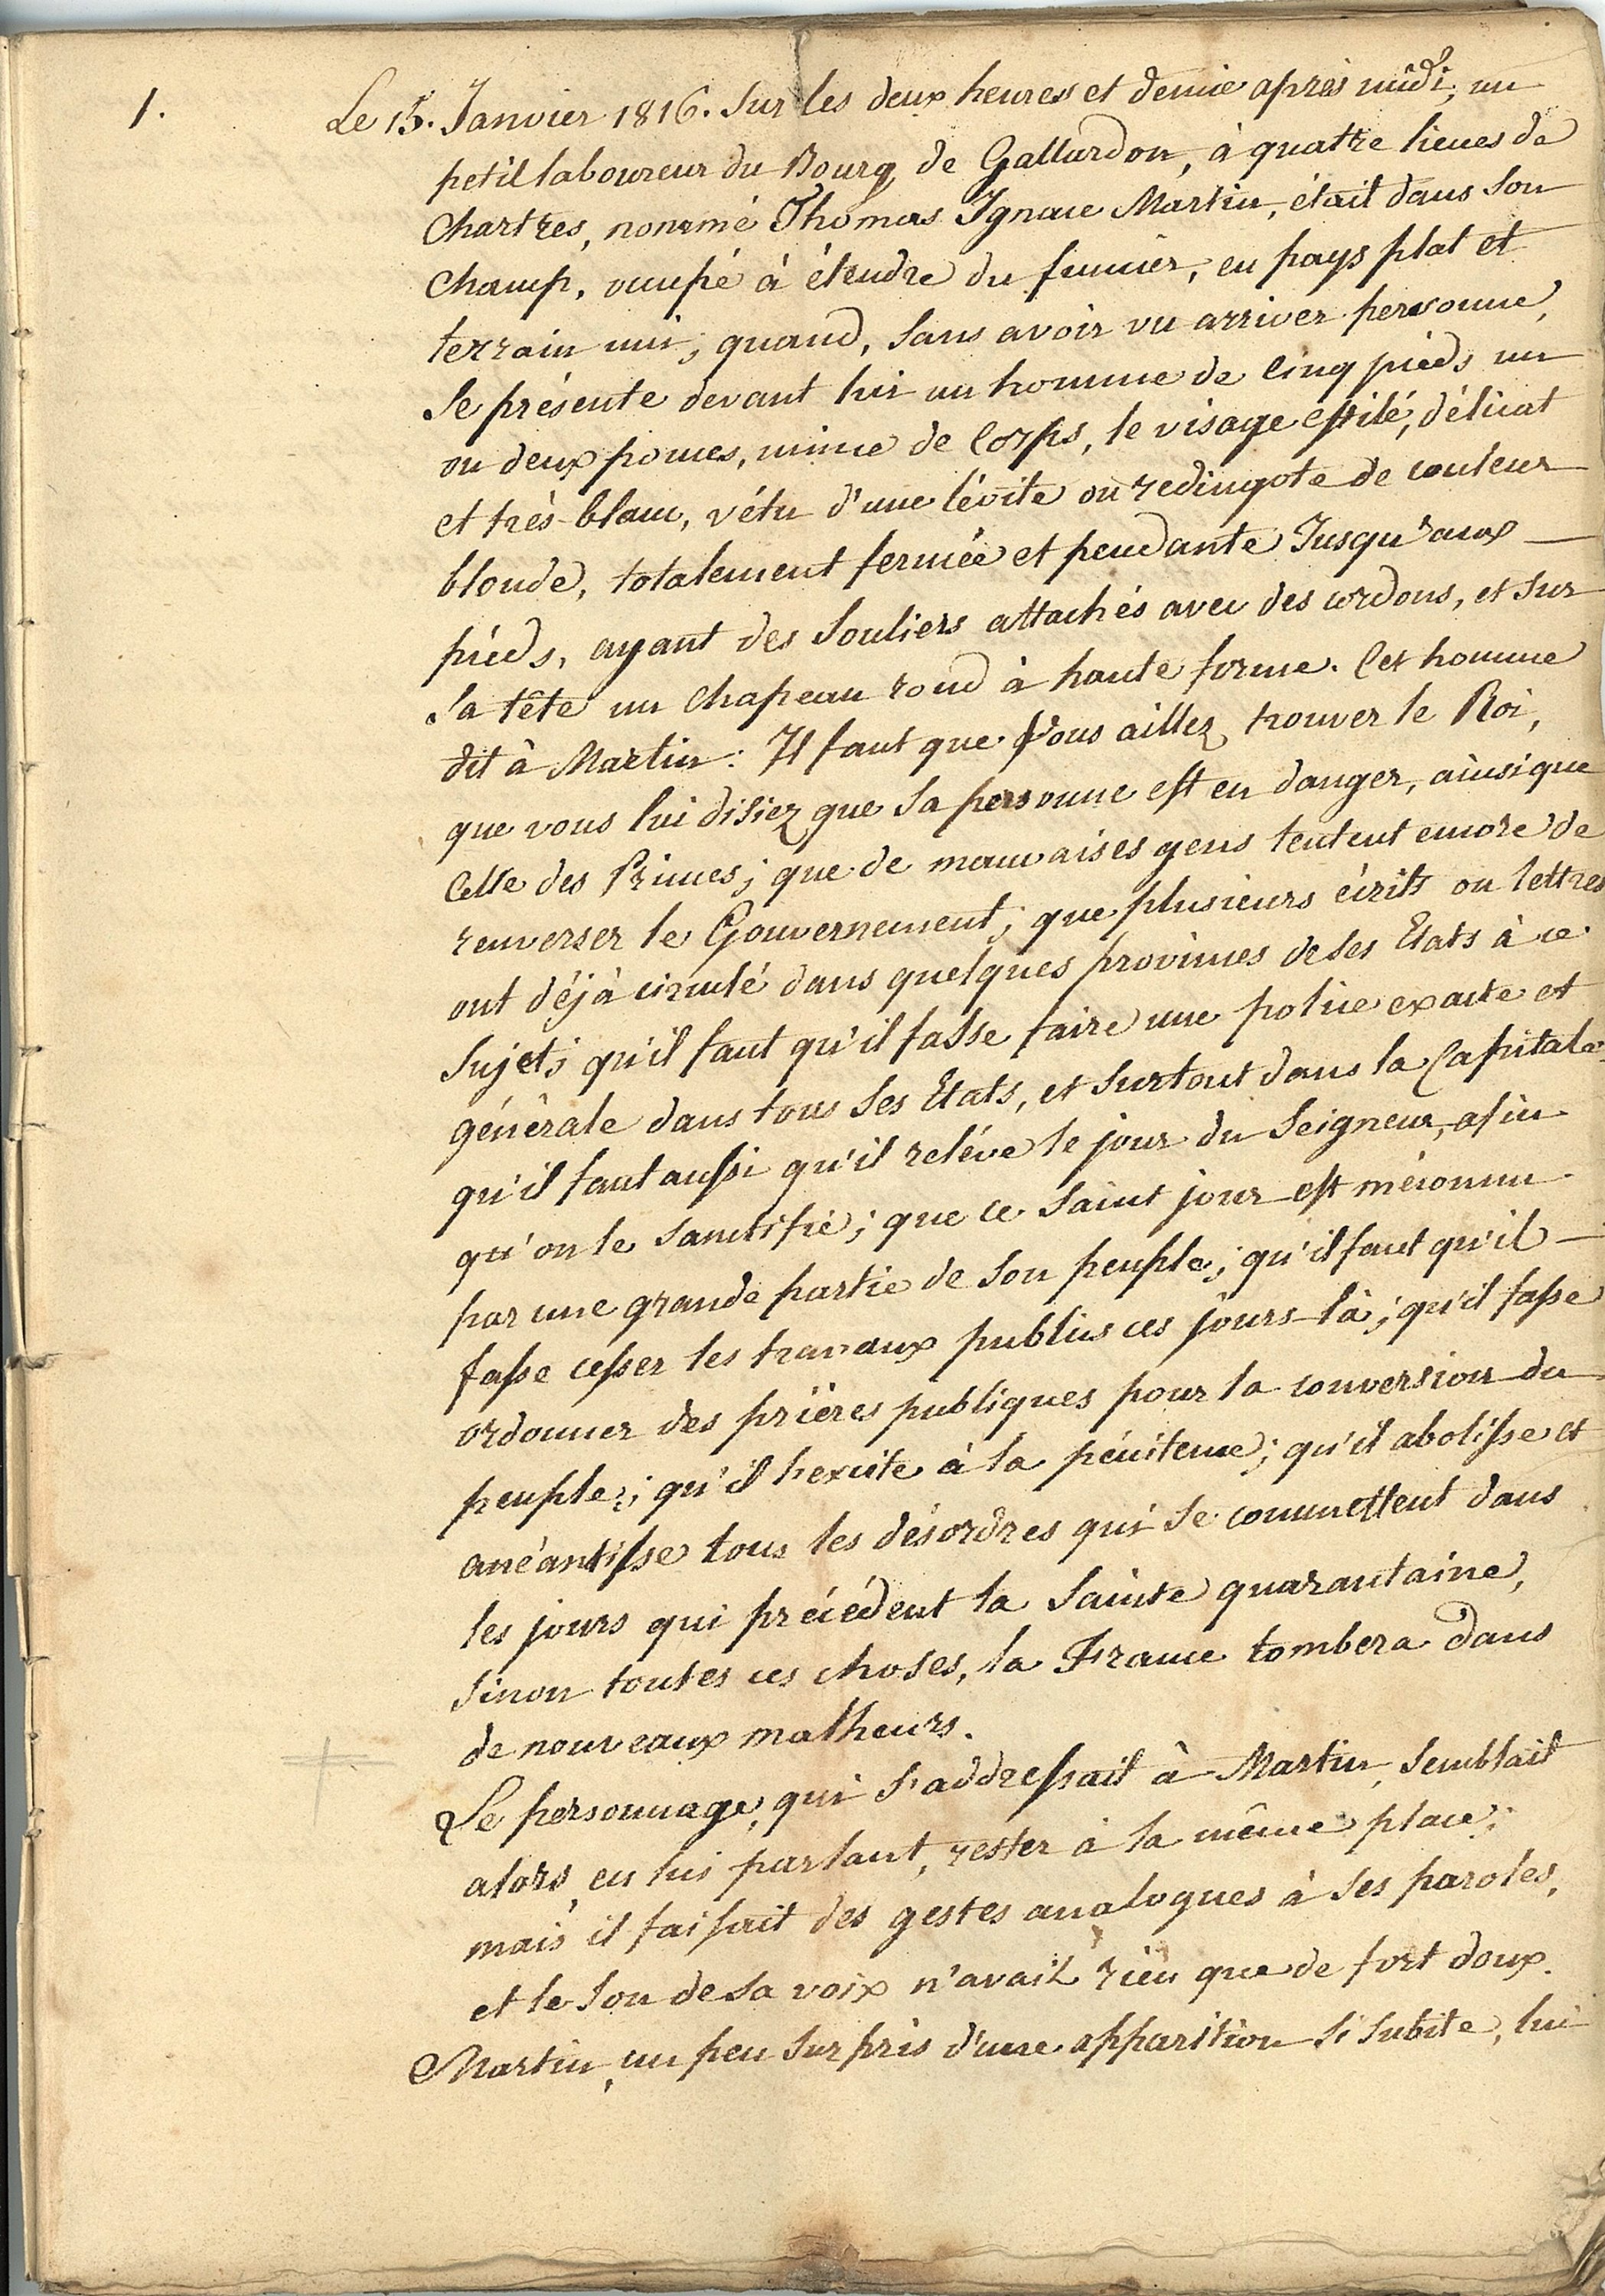 1.
Le 15. Janvier 1816. Sur les deux heures et demie après midi, un
petit laboureur du Bourg de Gallardon, à quattre lieues de
Chartres, nommé Thomas Ignace Martin, était dans son
Champ, occupé à étendre du fumier, en pays plat et
terrain uni, quand, sans avoir vu arriver personne,
se présente devant lui un homme de cinq pieds un
ou deux pouces, mince de corps, le visage effilé, délicat
et très-blanc, vétu d'une lévite ou redingote de couleur
blonde, totalement fermée et pendante Jusqu'aux
piéds, ayant des souliers attachés avec des cordons, et sur
sa tête un Chapeau rond à haute forme. Cet homme
dit à Martin: Il faut que Vous aillez trouver le Roi,
que vous lui disiez que sa personne est en danger, ainsi que
Celle des Princes; que de mauvaises gens tentent encore de
renverser le Gouvernement; que plusieurs écrits ou lettres
ont déjà circulé dans quelques provinces de ses Etats à ce
sujet; qu'il faut qu'il fasse faire une police exacte et
générale dans tous ses Etats, et surtout dans la Capitale
qu'il faut aussi qu'il reléve le jour du Seigneur, afin
qu'on le sanctifie; que ce saint jour est méconnu
par une grande partie de son peuple; qu'il faut qu'il
fasse cesser les travaux publics ces jours-là; qu'il fasse
ordonner des prières publiques pour la conversion du
peuple; qu'il l'excite à la pénitence; qu'il abolisse et
anéantisse tous les désordres qui se commettent dans
les jours qui précédent la sainte quarantaine,
sinon toutes ces choses, la France tombera dans
de nouveaux malheurs.
Le personnage, qui s'addressait à Martin, semblait
alors, en lui parlant, rester à la même place;
mais il faisait des gestes analogues à ses paroles,
et le son de sa voix n'avait rien que de fort doux.
Martin, un peu surpris d'une apparition si subite, lui